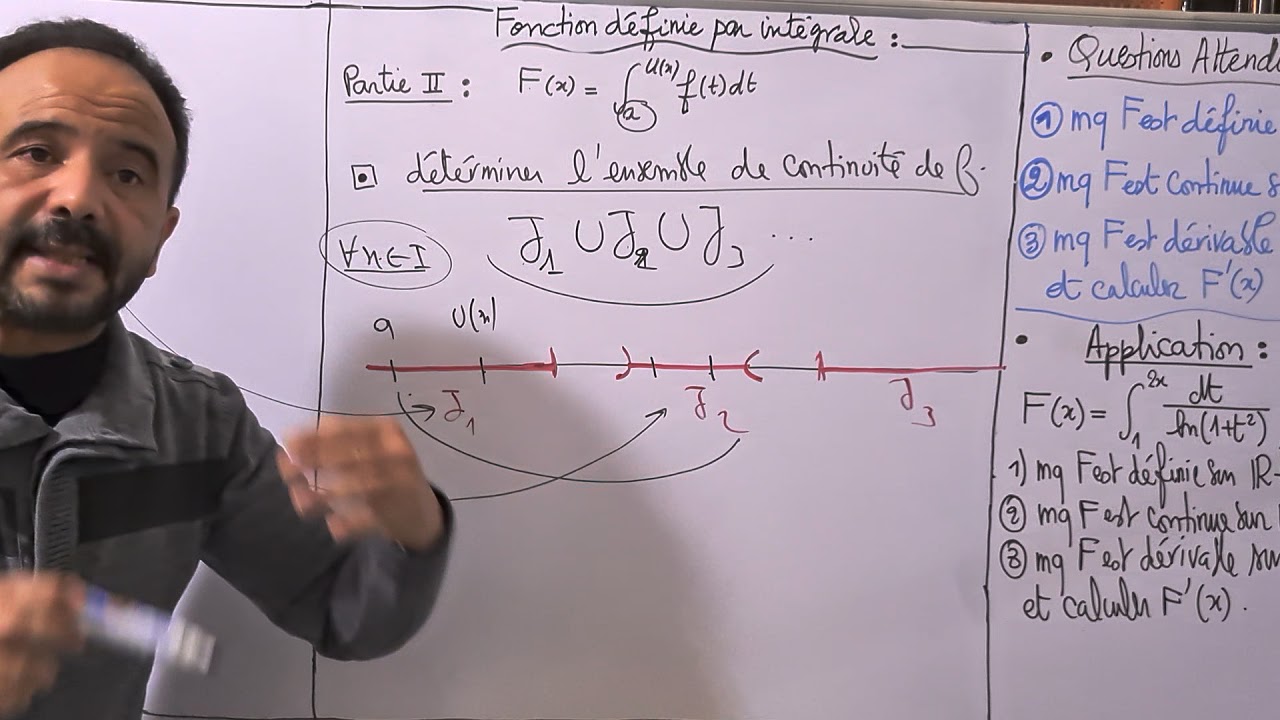 Fonction définie par intégrale :
Partie II : F(x) = ∫_a^{U(x)} f(t)dt
▣ détérminer l'ensemble de continuité de f.
∀x∈I
J₁ ∪ J₂ ∪ J₃ ...
a U(x)
J₁ J₂ J₃
• Questions Attend
① mq F est définie
② mq F est continue s
③ mq F est dérivable
et calculer F'(x)
• Application :
F(x) = ∫_1^{2x} dt/ln(1+t²)
1) mq F est définie sur IR-
② mq F est continue sur
③ mq F est dérivable su
et calculer F'(x).